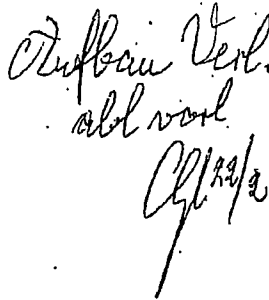 Aufbau Verl.
abl vorl
22/2